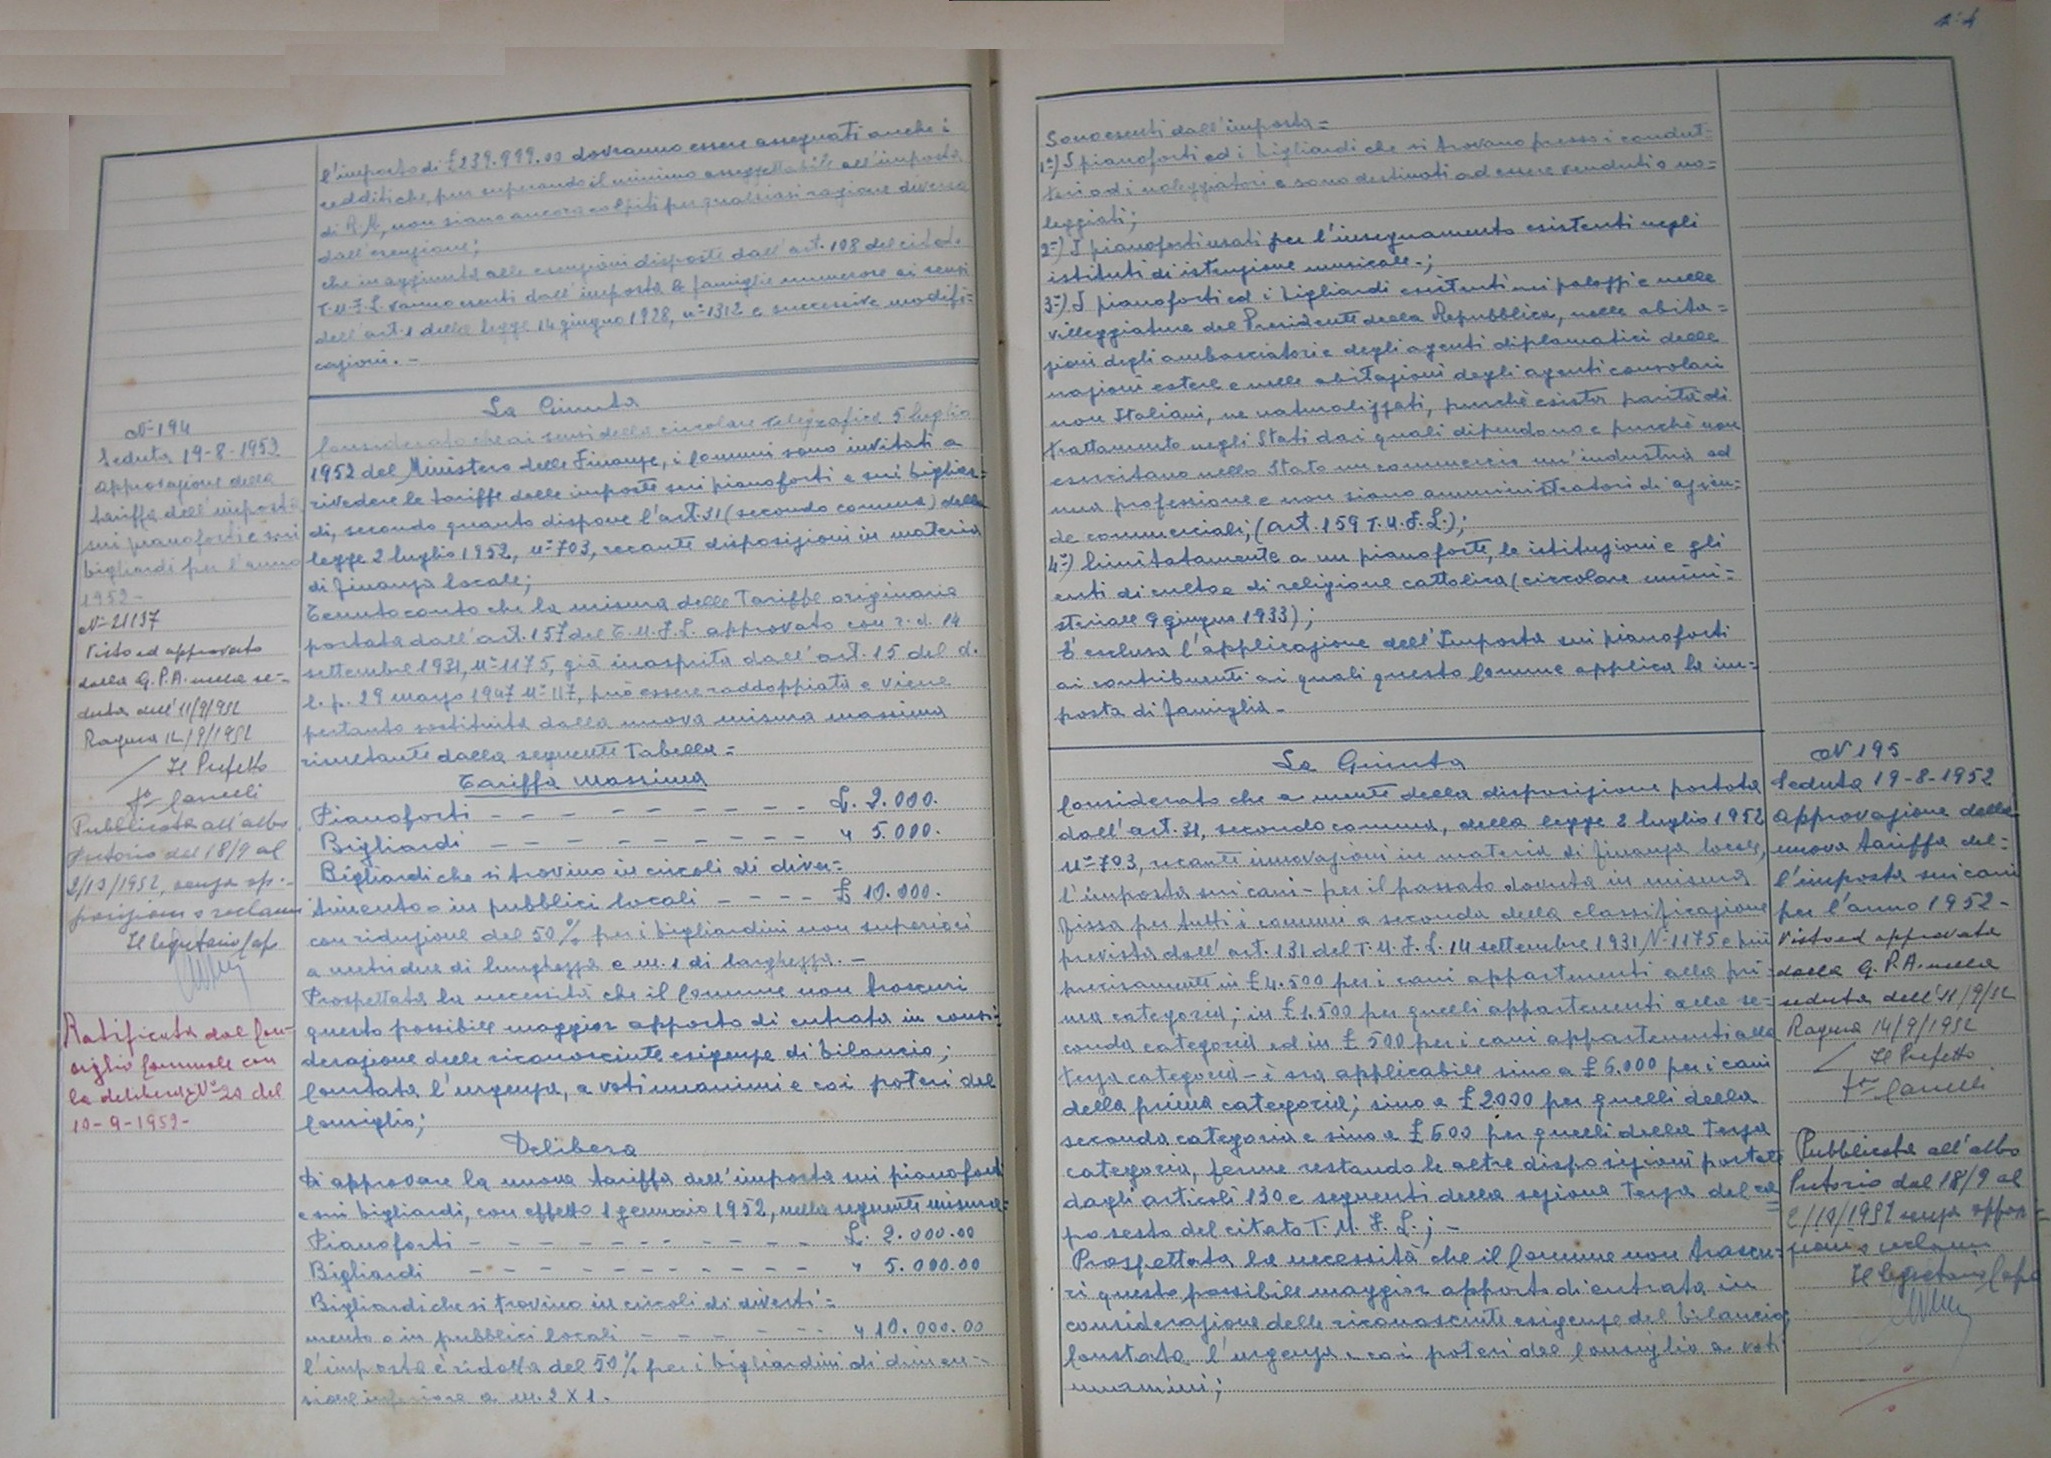 l'importo di £ 239.999.00 dovranno essere assegnati anche i
redditi che, pur superando il minimo assoggettabile all'imposta
di R.M., non siano ancora colpiti per qualsiasi ragione diversa
dall'esenzione;
che in aggiunta alle esenzioni disposte dall'art. 108 del citato
T.U.F.L. vanno esenti dall'imposta le famiglie numerose ai sensi
dell'art. 1 della legge 14 giugno 1928, n° 1312 e successive modifi=
cazioni. -
N° 194
Seduta 19-8-1952
approvazione della
tariffa dell'imposta
sui pianoforti e sui
bigliardi per l'anno
1952-
N° 21137
Visto ed approvato
dalla G.P.A. nella se=
duta dell'11/9/952
Ragusa 14/9/1952
Il Prefetto
f°
Pubblicata all'albo
Pretorio dal 18/9 al
2/10/1952, senza op.-
posizioni o reclami
Il Segretario Capo
Ratificata dal Con-
siglio Comunale con
la delibera N° 20 del
10-9-1952-
La Giunta
Considerato che ai sensi della circolare telegrafica 5 luglio
1952 del Ministero delle Finanze, i Comuni sono invitati a
rivedere le tariffe delle imposte sui pianoforti e sui bigliar=
di, secondo quanto dispone l'art. 31 (secondo comma) della
legge 2 luglio 1952, n° 703, recante disposizioni in materia
di finanza locale;
Tenuto conto che la misura delle Tariffe originaria
portata dall'art. 157 del T.U.F.L. approvato con r.d. 14
settembre 1931, N° 1175, già inasprita dall'art. 15 del d.
l.p. 29 marzo 1947 N° 117, può essere raddoppiata e viene
pertanto sostituita dalla nuova misura massima
risultante dalla seguente Tabella=
Tariffa massima
Pianoforti - - - - - - - - - £. 2.000.
Bigliardi - - - - - - - - - " 5.000.
Bigliardi che si trovino in circoli di diver=
timento o in pubblici locali - - - - £ 10.000.
con riduzione del 50% per i bigliardini non superiori
a metri due di lunghezza e m. 1 di larghezza. -
Prospettata la necessità che il Comune non trascuri
questo possibile maggior apporto di entrata in consi=
derazione delle riconosciute esigenze di bilancio;
Constatata l'urgenza, a voti unanimi e coi poteri del
Consiglio;
Delibera
di approvare la nuova tariffa dell'imposta sui pianoforti
e sui bigliardi, con effetto 1 gennaio 1952, nella seguente misura=
Pianoforti - - - - - - - - - - £. 2.000.00
Bigliardi - - - - - - - - - - " 5.000.00
Bigliardi che si trovino in circoli di diverti=
mento o in pubblici locali - - - - - - " 10.000.00
l'imposta è ridotta del 50% per i bigliardini di dimen=
sione inferiore a m. 2 x 1.
Sono esenti dall'imposta=
1°) I pianoforti ed i bigliardi che si trovano presso i condut=
tori od i noleggiatori e sono destinati ad essere venduti o no=
leggiati;
2°) I pianoforti usati per l'insegnamento esistenti negli
istituti di istruzione musicale.;
3°) I pianoforti ed i bigliardi esistenti nei palazzi e nelle
villeggiature del Presidente della Repubblica, nelle abita=
zioni degli ambasciatori e degli agenti diplomatici delle
nazioni estere e nelle abitazioni degli agenti consolari
non Italiani, ne naturalizzati, purchè esista parità di
trattamento negli Stati dai quali dipendono e purchè non
esercitano nello Stato un commercio un'industria od
una professione e non siano amministratori di azien=
de commerciali, (art. 159 T.U.F.L.);
4°) limitatamente a un pianoforte, le istituzioni e gli
enti di culto e di religione cattolica (circolare mini=
steriale 9 giugno 1933);
E' esclusa l'applicazione dell'Imposta sui pianoforti
ai contribuenti ai quali questo Comune applica la im=
posta di famiglia-
La Giunta
Considerato che a mente della disposizione portata
dall'art. 31, secondo comma, della legge 2 luglio 1952
N° 703, recante innovazioni in materia di finanza locale,
l'imposta sui cani - per il passato dovuta in misura
fissa per tutti i comuni a seconda della classificazione
prevista dall'art. 131 del T.U.F.L. 14 settembre 1931, N° 1175 e più
precisamente in £ 4.500 per i cani appartenenti alla pri=
ma categoria; in £ 1.500 per quelli appartenenti alla se=
conda categoria ed in £ 500 per i cani appartenenti alla
terza categoria - è ora applicabile sino a £ 6.000 per i cani
della prima categoria; sino a £ 2000 per quelli della
seconda categoria e sino a £ 600 per quelli della terza
categoria, ferme restando le altre disposizioni portate
dagli articoli 130 e seguenti della sezione terza del ca=
po sesto del citato T.U.F.L.; -
Prospettata la necessità che il Comune non trascu=
ri questo possibile maggior apporto di entrata in
considerazione delle riconosciute esigenze del bilancio;
Constatata l'urgenza e coi poteri del Consiglio a voti
unanimi;
N 195
Seduta 19-8-1952
Approvazione della
nuova tariffa del=
l'imposta sui cani
per l'anno 1952-
Visto ed approvato
dalla G.P.A. nella
seduta dell'11/9/52
Ragusa 14/9/1952
Il Prefetto
f°
Pubblicata all'albo
Pretorio dal 18/9 al
2/10/1952 senza opposi=
zioni o reclami
Il Segretario Capo